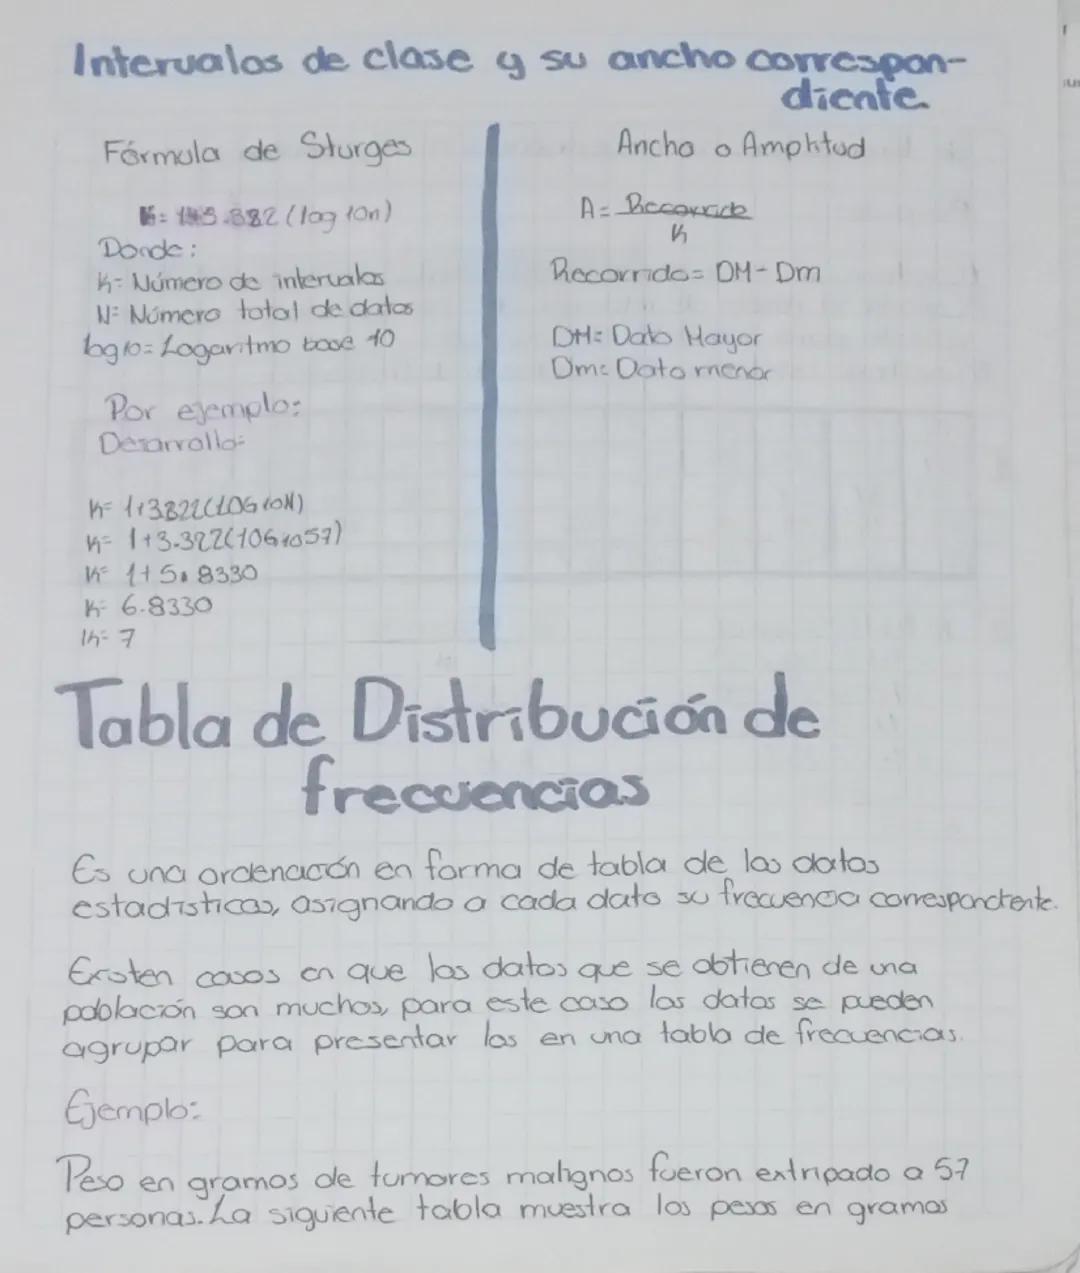 Intervalos de clase y su ancho correspon-
diente.
Fórmula de Sturges
K= 1+3.382 (log 10n)
Donde:
K= Número de intervalos
N= Número total de datos
log10= Logaritmo base 10
Por ejemplo:
Desarrollo:
K= 1+3.822(LOG 10N)
K= 1+3.322(10G1057)
K= 1+5.8330
K= 6.8330
K= 7
Ancho o Amplitud
A= Recorrido
K
Recorrido= DM-Dm
DM= Dato Mayor
Dm= Dato menor
Tabla de Distribución de
frecuencias
Es una ordenación en forma de tabla de los datos
estadísticos, asignando a cada dato su frecuencia correspondiente.
Existen casos en que los datos que se obtienen de una
población son muchos, para este caso los datos se pueden
agrupar para presentar los en una tabla de frecuencias.
Ejemplo:
Peso en gramos de tumores malignos fueron extripado a 57
personas. La siguiente tabla muestra los pesos en gramos